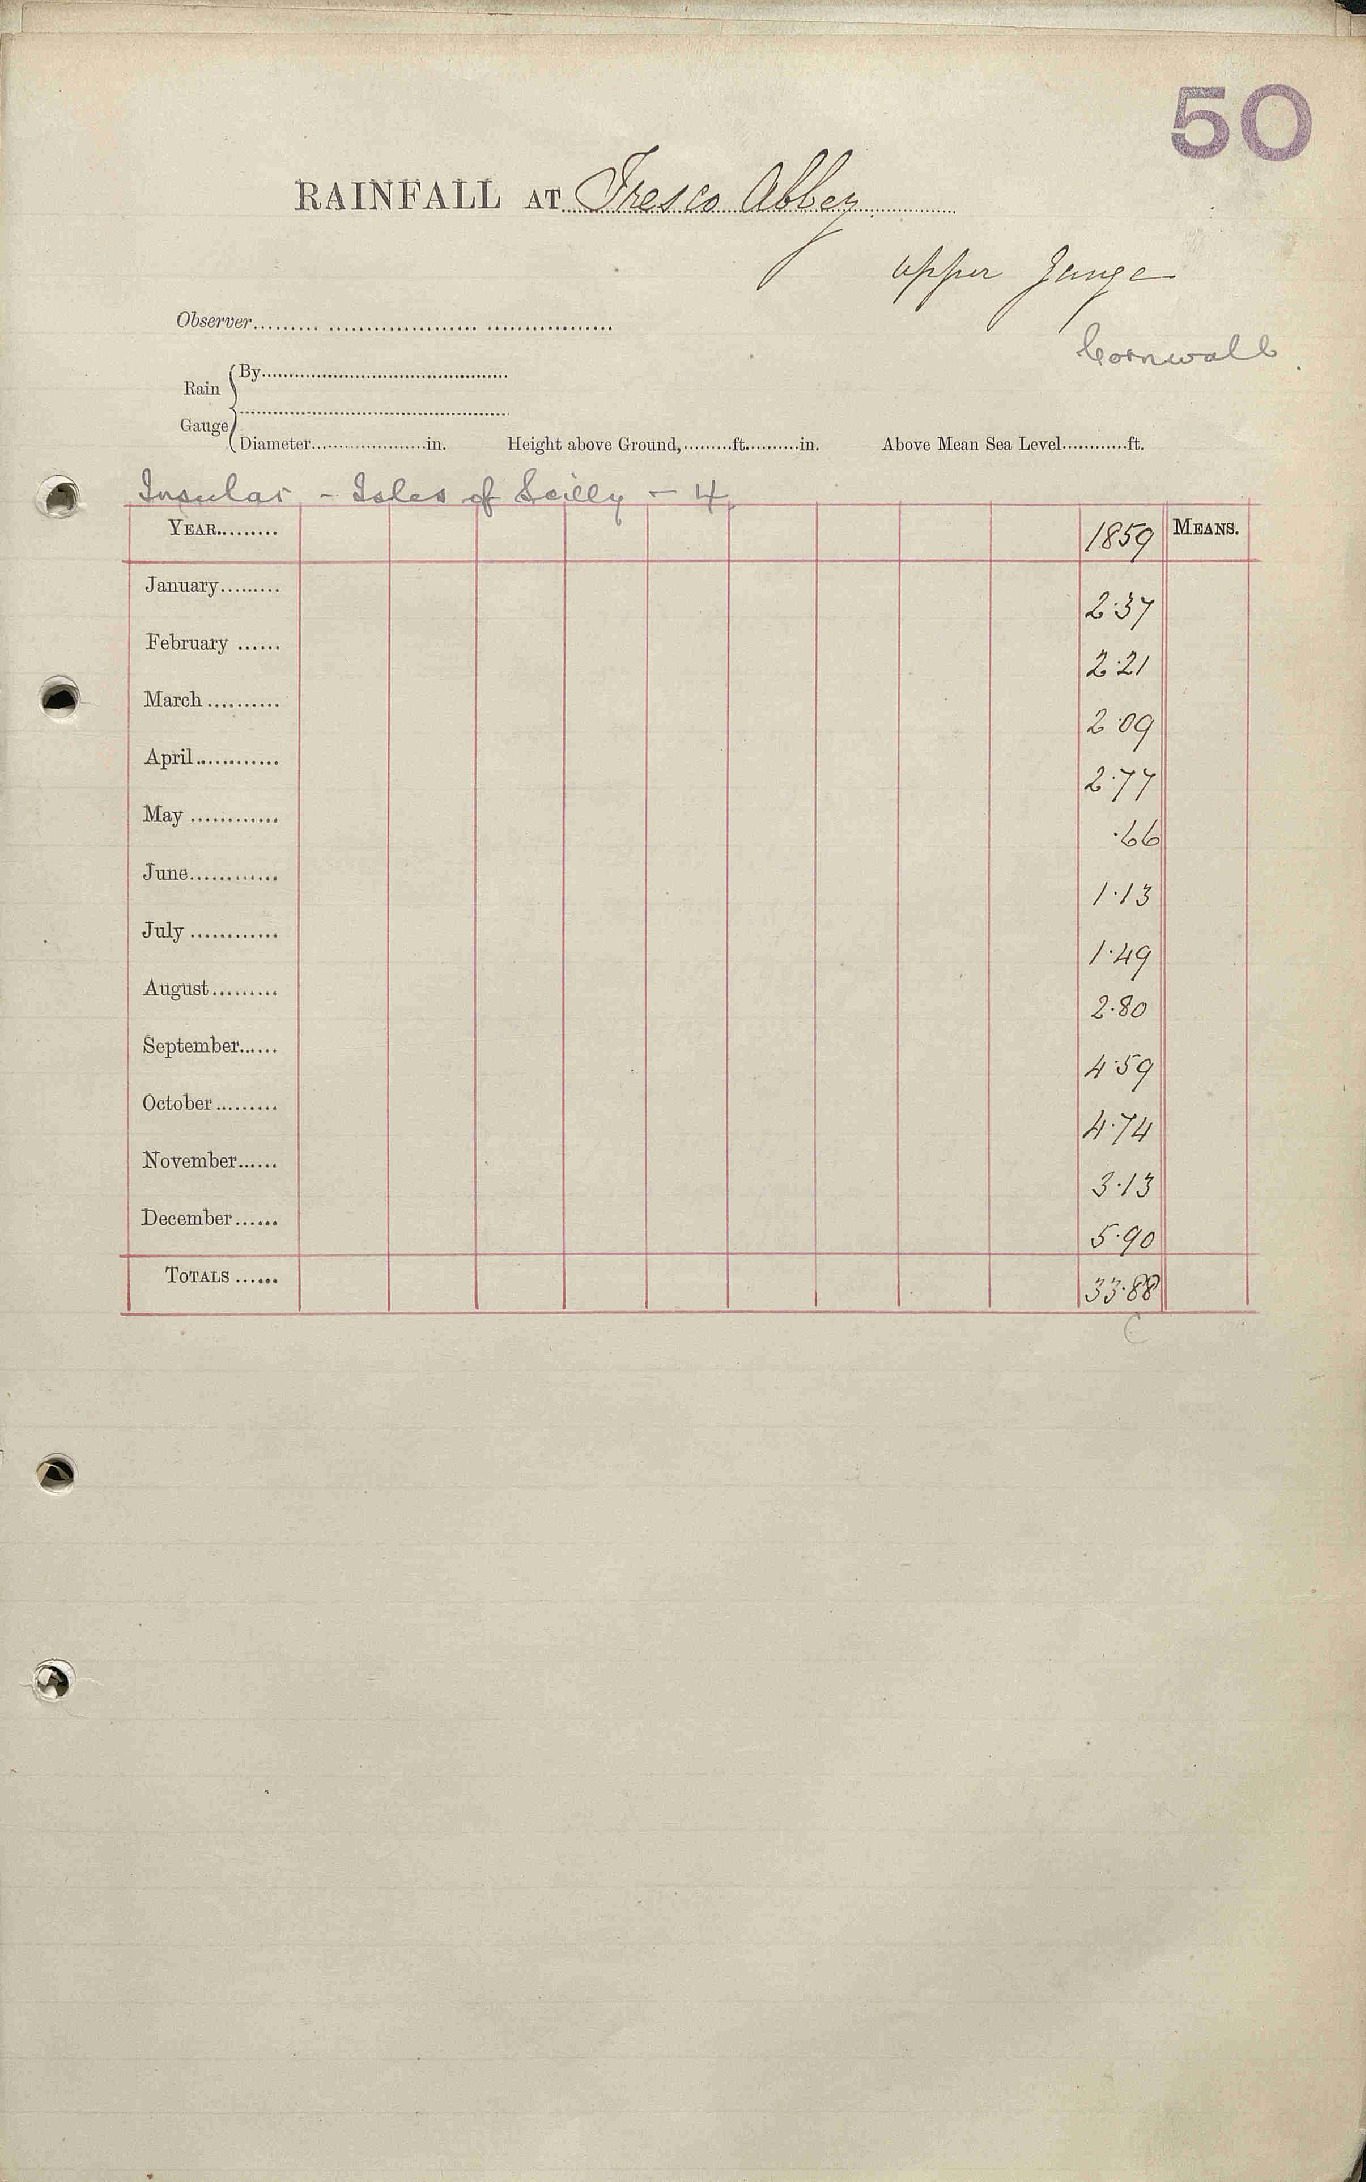 50
RAINFALL AT Tresco Abbey
upper Gauge
Observer
Cornwall
Rain Gauge { By
Diameter in. Height above Ground, ft. in. Above Mean Sea Level ft.
Insular - Isles of Scilly - 4
YEAR 1859 MEANS.
January 2.37
February 2.21
March 2.09
April 2.77
May .66
June 1.13
July 1.49
August 2.80
September 4.59
October 4.74
November 3.13
December 5.90
TOTALS 33.88
C